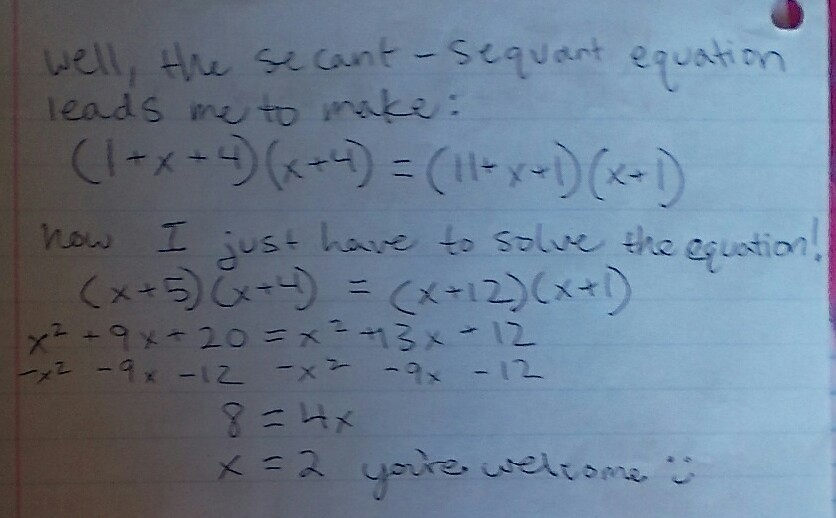 well, the secant - sequant equation
leads me to make:
(1+x+4)(x+4) = (11+x+1)(x+1)
now I just have to solve the equation!
(x+5)(x+4) = (x+12)(x+1)
x² + 9x + 20 = x² +13x + 12
-x² -9x -12 -x² -9x -12
8 = 4x
x = 2 you're welcome :)